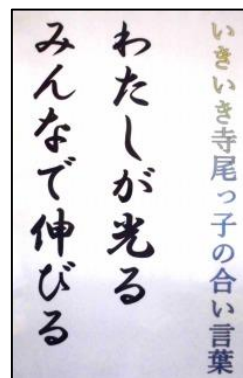 いきいき寺尾っ子の合い言葉
わたしが光る
みんなで伸びる